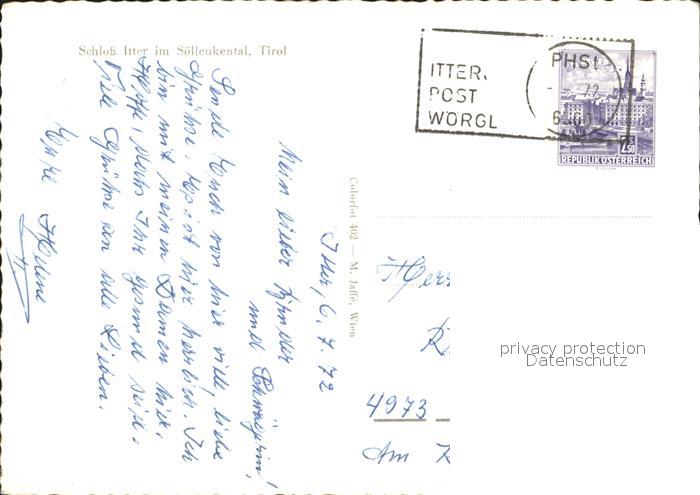 Schloß Itter im Sölleukental, Tirol
Itter, 6.7.72
Mein lieber
und Schwägerin!
Sende Euch von hier viele, liebe
Grüße. Es ist hier herrlich. Ich
bin mit meinen Damen hier.
Hoffe, dass Ihr gesund seid.
Viele Grüße an alle Lieben.
Eure Helene
Colorfot 402 — M. Jaffé, Wien
ITTER,
POST
WÖRGL
PHSt
72
2,50
REPUBLIK ÖSTERREICH
Herr
4973
Am
privacy protection
Datenschutz